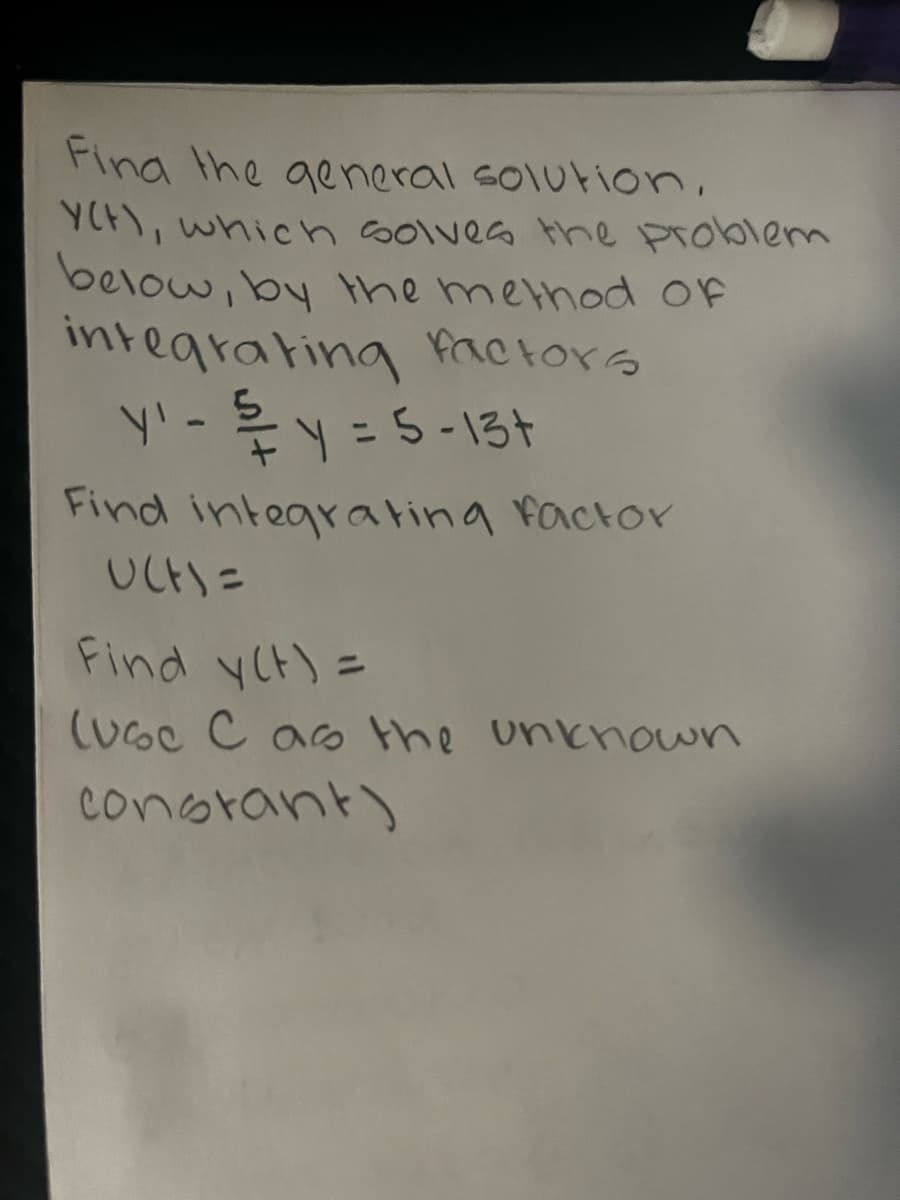 Find the general solution,
y(t), which solves the problem
below, by the method of
integrating factors
y' - 5/t y = 5 - 13t
Find integrating factor
U(t) =
Find y(t) =
(use C as the unknown
constant)